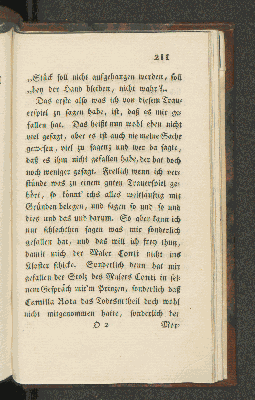 211
„Stück soll nicht aufgehangen werden, soll
„bey der Hand bleiben, nicht wahr?„
Das erste also was ich von diesem Trau-
erspiel zu sagen habe, ist, daß es mir ge-
fallen hat. Das heißt nun wohl eben nicht
viel gesagt, aber es ist auch nie meine Sache
gewesen, viel zu sagen; und wer da sagte,
daß es ihm nicht gefallen habe, der hat doch
noch weniger gesagt. Freilich wenn ich ver-
stünde was zu einem guten Trauerspiel ge-
hört, so könnt' ichs alles weitläuftig mit
Gründen belegen, und sagen so und so und
dies und das und darum. So aber kann ich
nur schlechthin sagen was mir sonderlich
gefallen hat, und das will ich frey thun,
damit mich der Maler Conti nicht ins
Kloster schicke. Sonderlich denn hat mir
gefallen der Stolz des Malers Conti in sei-
nem Gespräch mit'm Prinzen, sonderlich daß
Camilla Rota das Todesurtheil doch wohl
nicht mitgenommen hatte, sonderlich der
O 2 Mor-